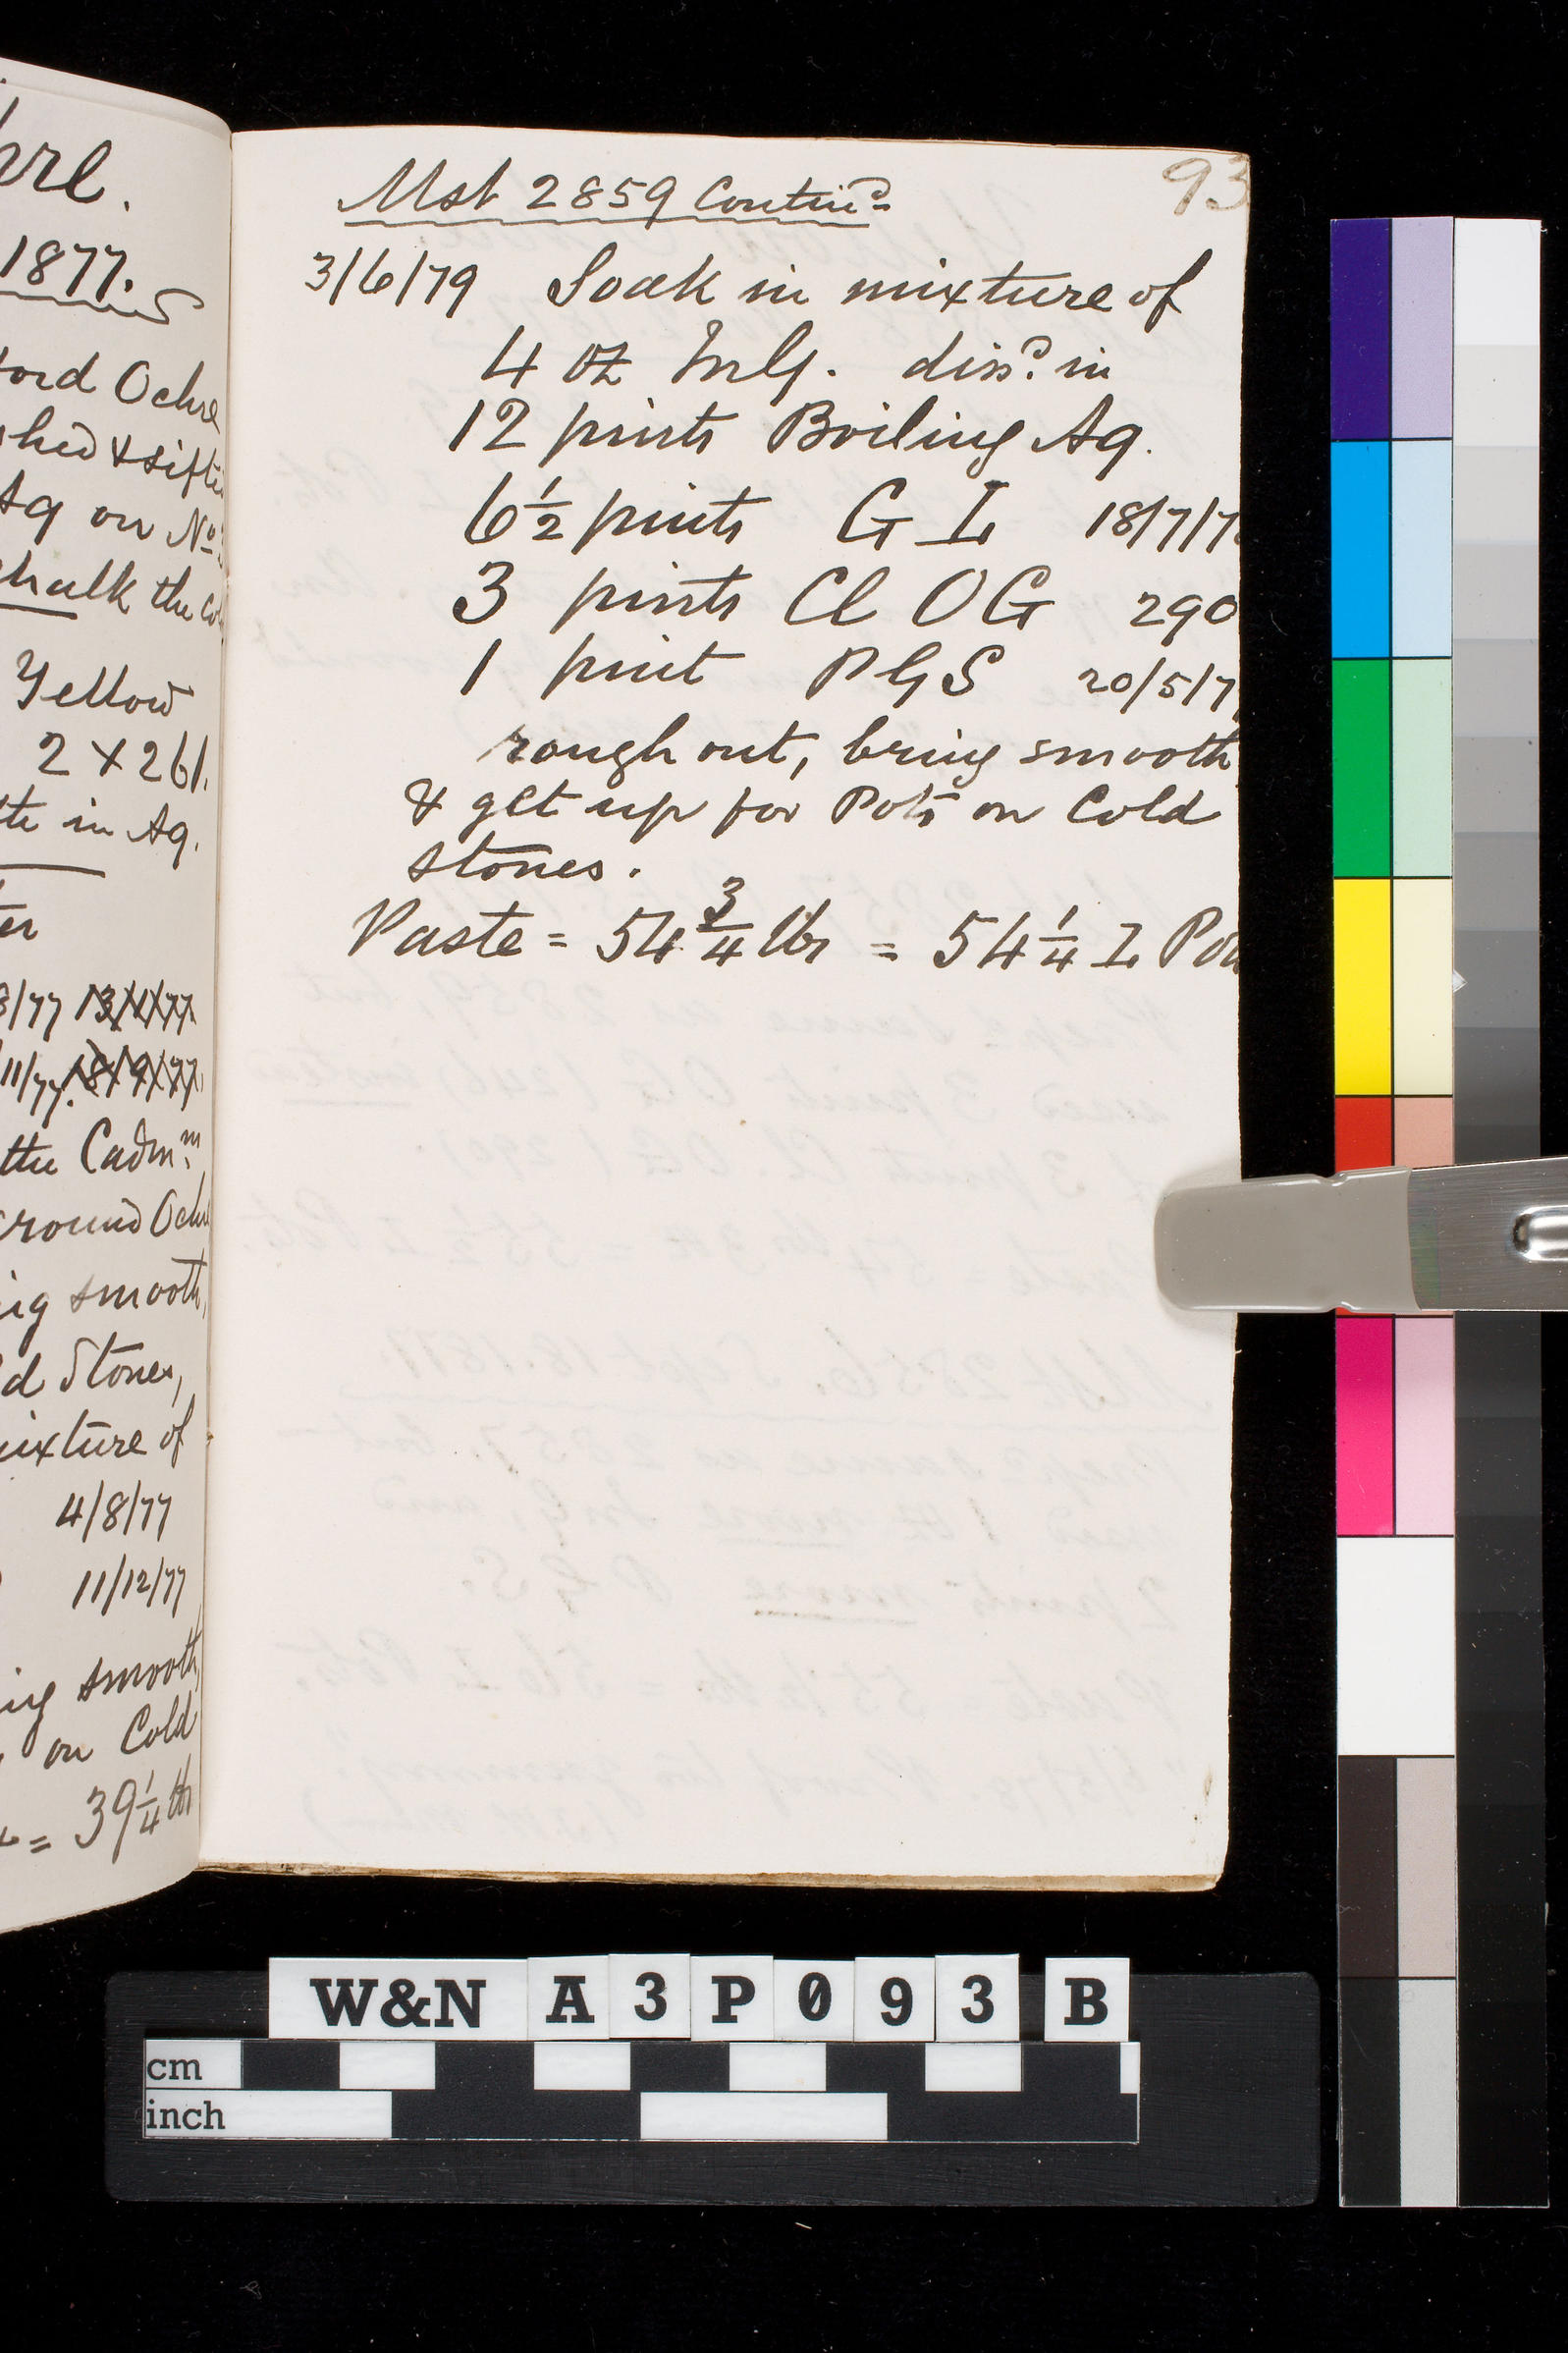 hre.
1877.
ord Ochre
hed & sifte
Aq on No
halk the co
Yellow
2 x 261.
te in Aq.
er
8/77 13/4/77
11/77. 18/9/77
the Cadm.m
round Ochr
ig smooth,
d Stones,
ixture of
4/8/77
11/12/77
ing smooth,
on Cold
= 39 1/4 lb
93
Mst 2859 Contind
3/6/79 Soak in mixture of
4 oz Mlg. dissd. in
12 pints Boiling Aq.
6 1/2 pints G I 18/7/7
3 pints Cl OG 290
1 pint P G S 20/5/7
rough out, bring smooth
& get up for Pots on Cold
stones.
Paste = 54 3/4 lbs = 54 1/4 I Po
W&N A3P093 B
cm
inch